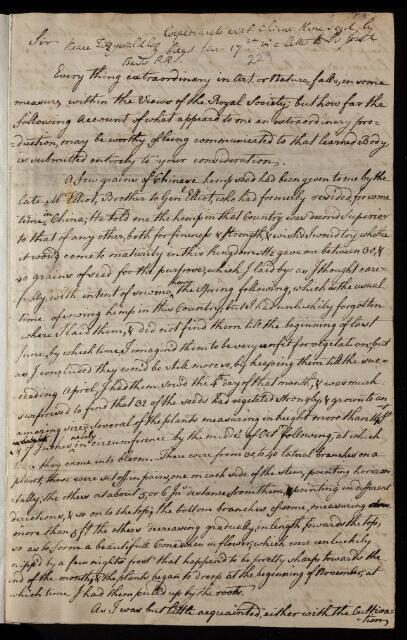 Experiments with Chinese Hemp Seed, by
Sir
Keane Fitzgerald Esq. in a Letter to Sir Joseph
Banks P.R.S.
229
Every thing extraordinary in Art, or Nature, falls, in some
measure, within the Views of the Royal Society; but how far the
following account of what appeared to me an extraordinary pro-
-duction, may be worthy of being communicated to that learned Body,
is submitted entirely to your consideration.
A few grains of Chinese hemp seed had been given to me by the
late Mr Elliot, Brother to Genl Elliot, who had formerly resided for some
time in China; He told me the hemp in that Country was deemed superior
to that of any other, both for fineness & strength, & wished I would try whether
it would come to maturity in this Kingdom. He gave me between 30, &
40 grains of seed for the purpose, which I laid by as I thought care-
-fully, with intent of sowing them the Spring following, which is the usual
time of sowing hemp in this Country, but had unluckily forgotten
where I laid them, & did not find them till the beginning of last
June, by which time I imagined them to be very unfit for vegetation, but
as I concluded they would be still more so, by keeping them till the suc-
-ceeding April, I had them sowed the 4th day of that month, & was much
surprised to find that 32 of the seeds had vegetated strongly, & grown to an
amazing size, several of the plants measuring in height more than 14 ft
& nearly 7 Inches in circumference by the middle of Octr following, at which
time they came into bloom. There were from 30, to 40 lateral branches on a
plant; these were set off in pairs, one on each side of the stem, pointing horizon-
-tally, the others at about 5, or 6 Ins distance from them, pointing in different
directions, & so on to the top; the bottom branches of some, measuring
more than 5 ft the others decreasing gradually, in length towards the top,
so as to form a beautifull Cone when in flower, which were unluckily
nipped by a few nights frost that happened to be pretty sharp towards the
end of the month, & the plants began to droop at the beginning of November, at
which time I had them pulled up by the roots.
As I was but little acquainted, either with the cultiva-
-tion